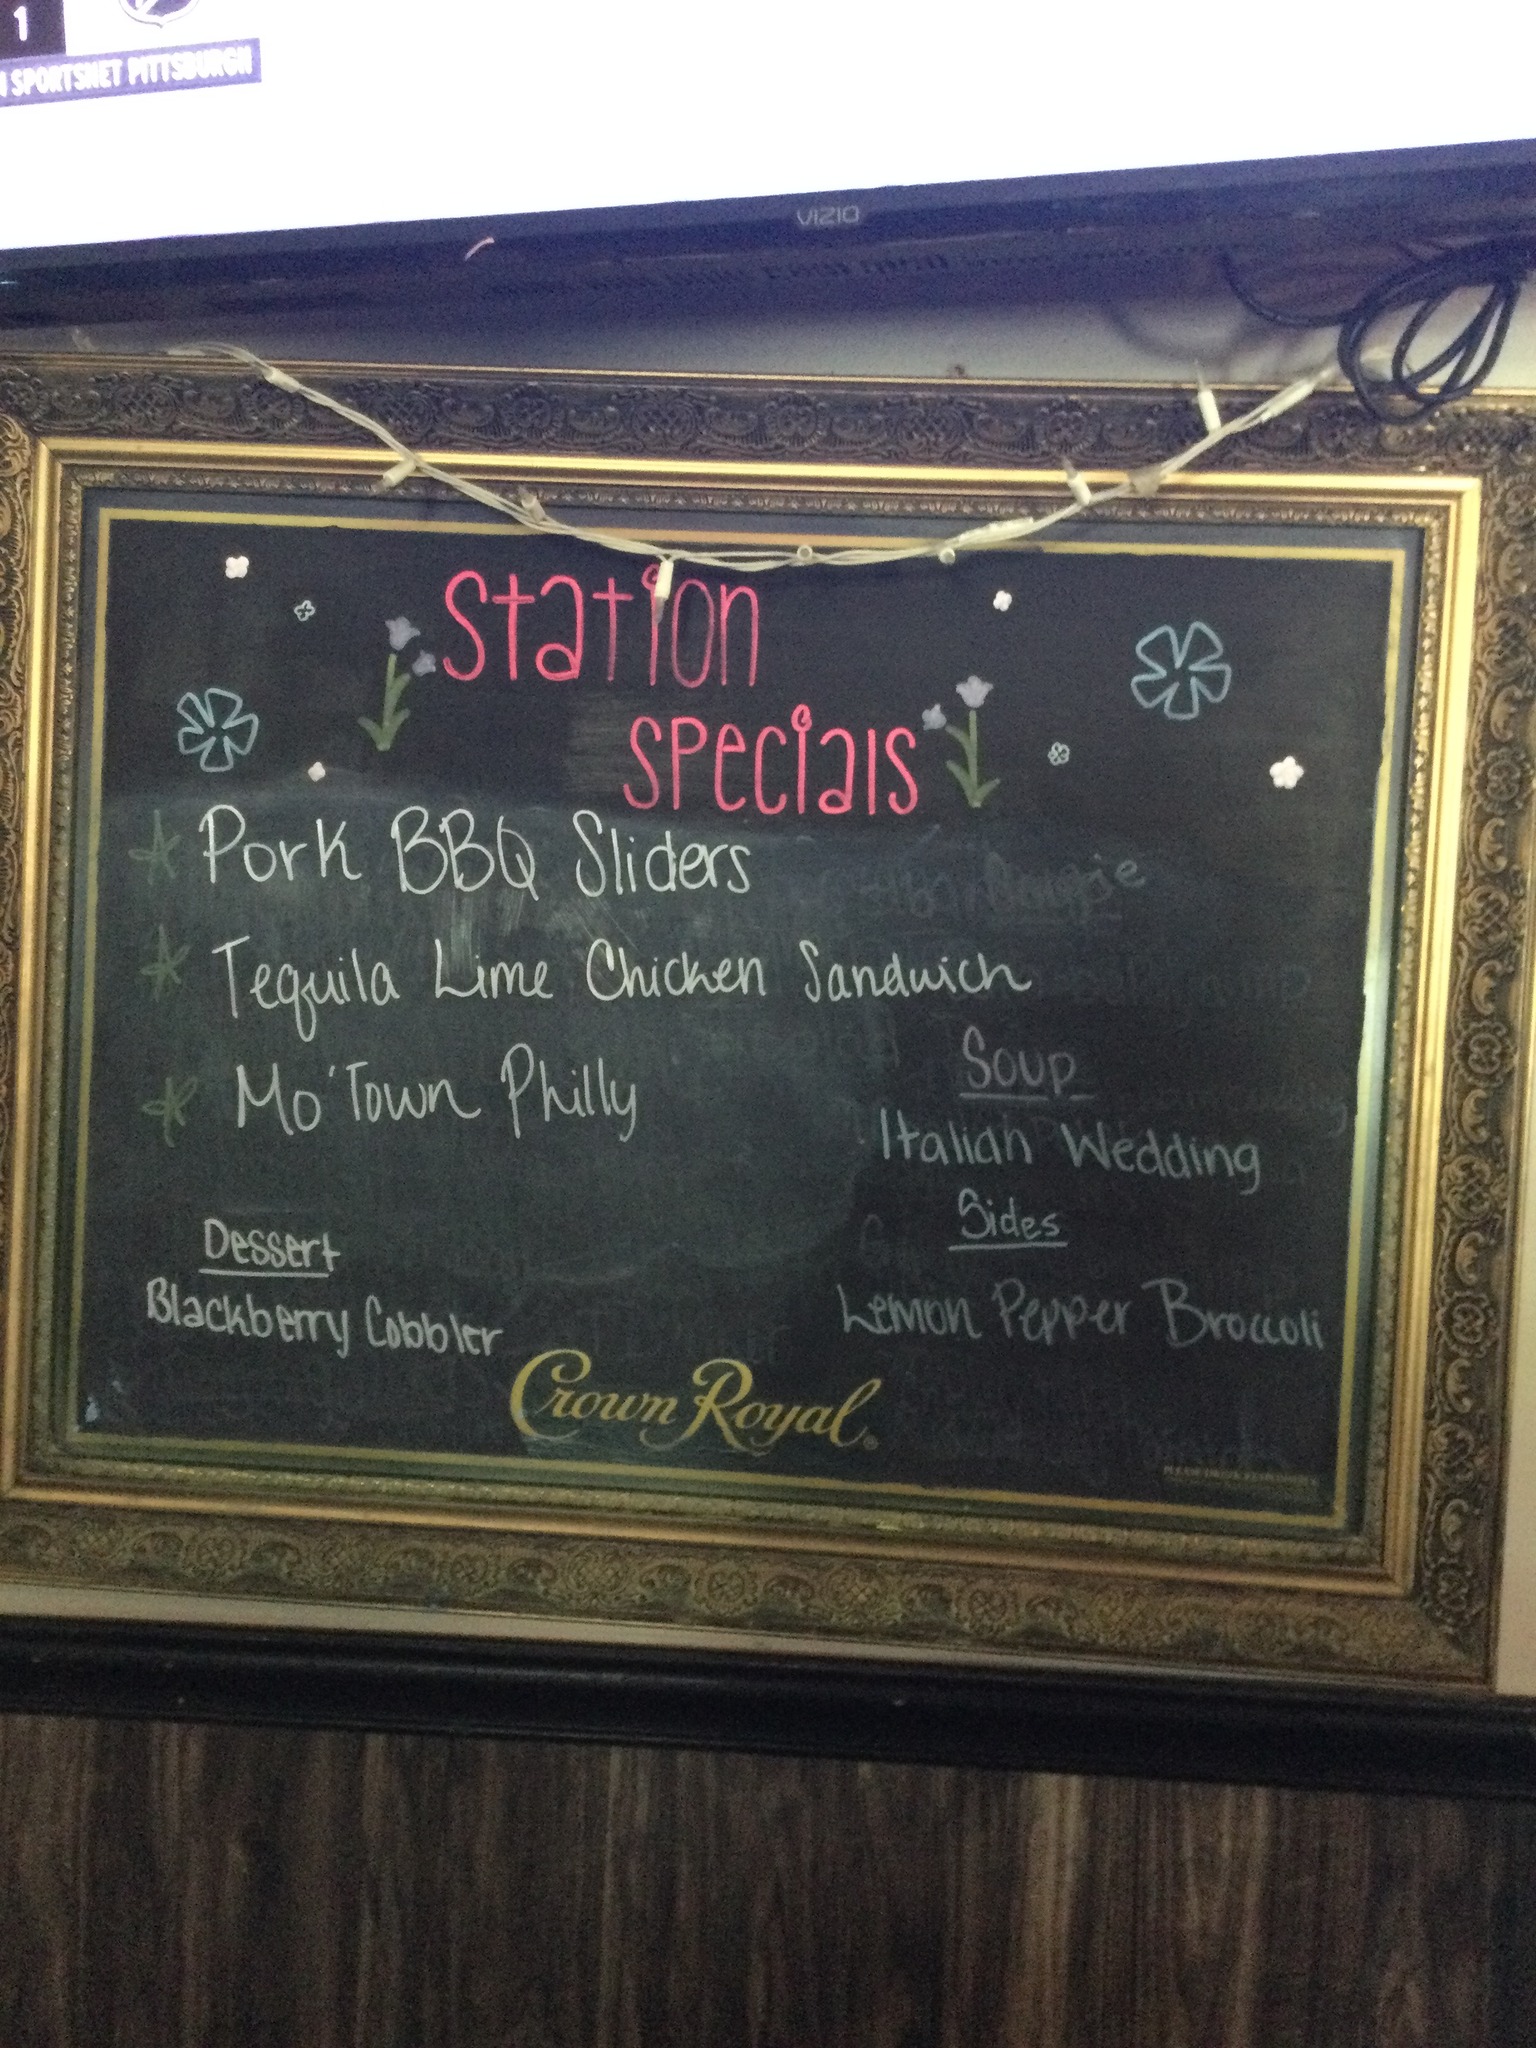 1
SPORTSNET PITTSBURGH
VIZIO
Station
Specials
Pork BBQ Sliders
Tequila Lime Chicken Sandwich
Mo'Town Philly
Soup
Italian Wedding
Sides
Lemon Pepper Broccoli
Dessert
Blackberry Cobbler
Crown Royal®